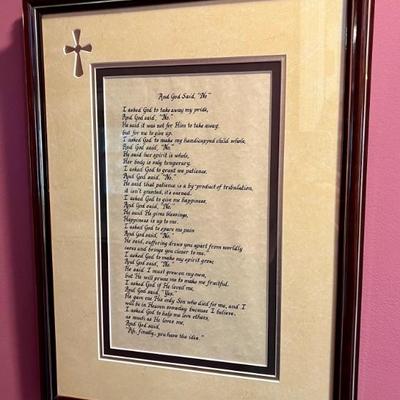 And God Said, "No"
I asked God to take away my pride,
And God said, "No."
He said it was not for Him to take away,
but for me to give up.
I asked God to make my handicapped child whole,
And God said, "No."
He said her spirit is whole,
Her body is only temporary.
I asked God to grant me patience.
And God said, "No."
He said that patience is a by-product of tribulation,
it isn't granted, it's earned.
I asked God to give me happiness,
And God said, "No.
He said He gives blessings,
Happiness is up to me.
I asked God to spare me pain
And God said, "No."
He said, suffering draws you apart from worldly
cares and brings you closer to me."
I asked God to make my spirit grow,
And God said, "No."
He said I must grow on my own,
but He will prune me to make me fruitful.
I asked God if He loved me,
And God said, "Yes."
He gave me His only Son who died for me, and I
will be in Heaven someday because I believe.
I asked God to help me love others,
as much as He loves me,
And God said,
"Ah, finally, you have the idea."